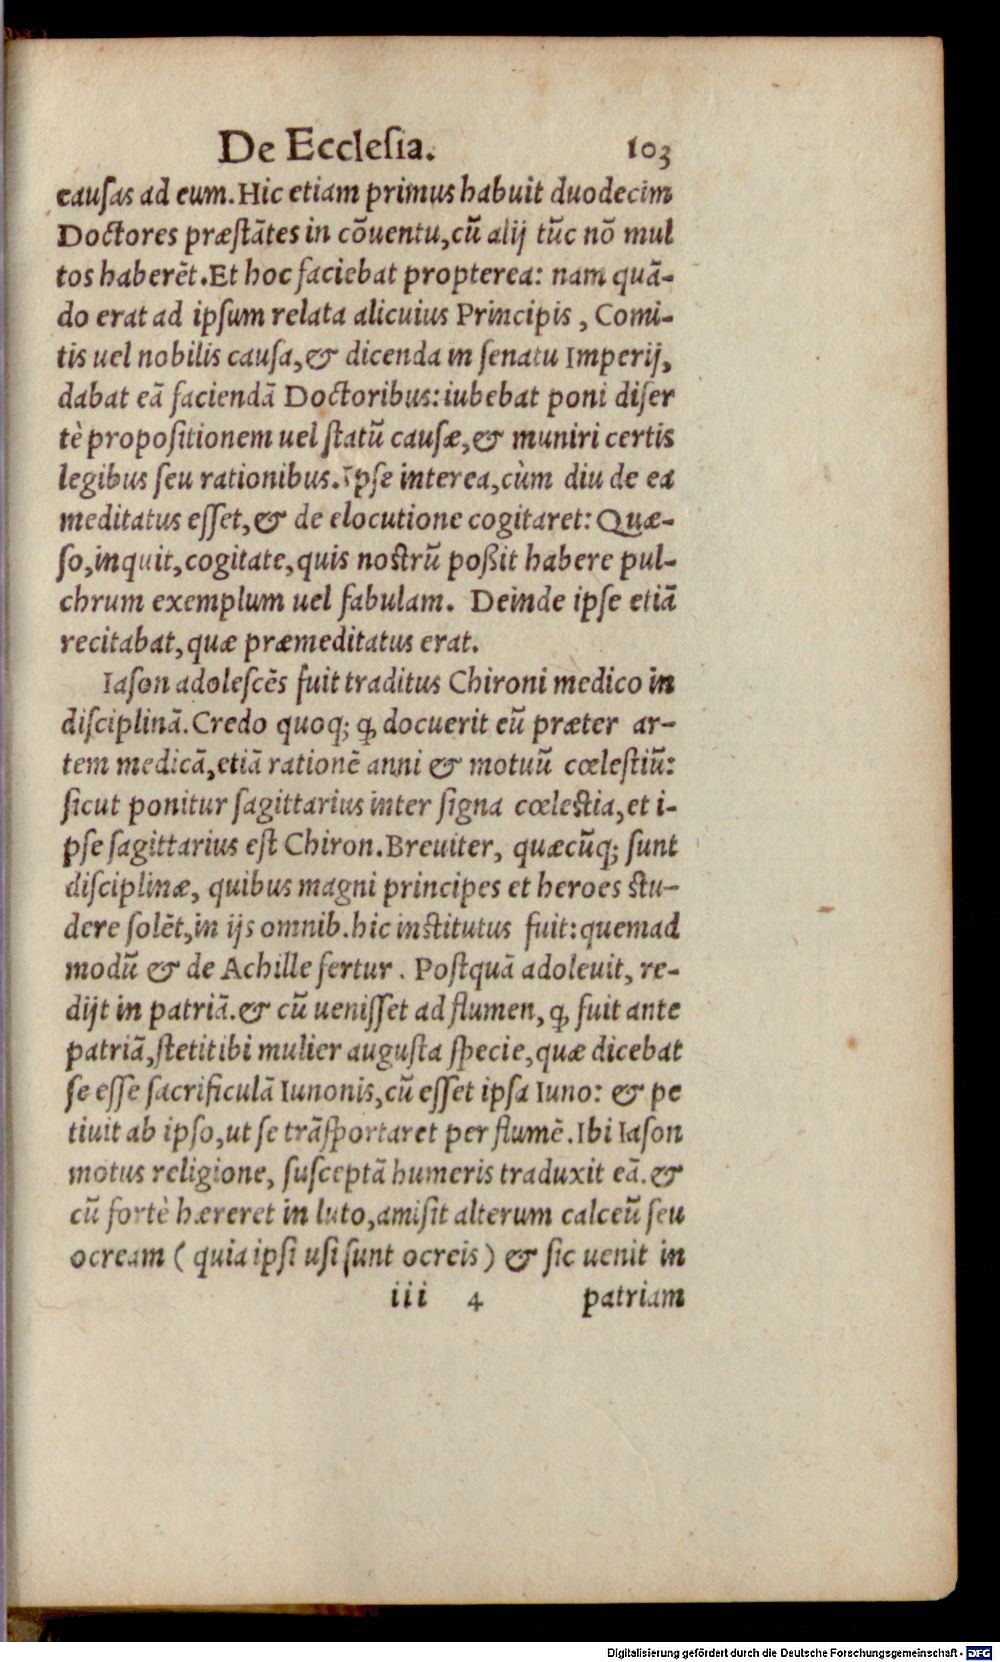 De Eccleſia. 103
cauſas ad eum. Hic etiam primus habuit duodecim
Doctores præſtātes in cōuentu, cū alij tūc nō mul
tos haberēt. Et hoc faciebat propterea: nam quā-
do erat ad ipſum relata alicuius Principis, Comi-
tis uel nobilis cauſa, & dicenda in ſenatu Imperij,
dabat eā faciendā Doctoribus: iubebat poni diſer
tè propoſitionem uel ſtatū cauſæ, & muniri certis
legibus ſeu rationibus. Ipſe interea, cùm diu de ea
meditatus eſſet, & de elocutione cogitaret: Quæ-
ſo, inquit, cogitate, quis noſtrū poßit habere pul-
chrum exemplum uel fabulam. Deinde ipſe etiā
recitabat, quæ præmeditatus erat.
Iaſon adoleſcēs fuit traditus Chironi medico in
diſciplinā. Credo quoq; ꝙ docuerit eū præter ar-
tem medicā, etiā rationē anni & motuū cœleſtiū:
ſicut ponitur ſagittarius inter ſigna cœleſtia, et i-
pſe ſagittarius eſt Chiron. Breuiter, quæcūq; ſunt
diſciplinæ, quibus magni principes et heroes ſtu-
dere ſolēt, in ijs omnib. hic inſtitutus fuit: quemad
modū & de Achille fertur. Poſtquā adoleuit, re-
dijt in patriā. & cū ueniſſet ad flumen, ꝙ fuit ante
patriā, ſtetit ibi mulier auguſta ſpecie, quæ dicebat
ſe eſſe ſacrificulā Iunonis, cū eſſet ipſa Iuno: & pe
tiuit ab ipſo, ut ſe trāſportaret per flumē. Ibi Iaſon
motus religione, ſuſceptā humeris traduxit eā. &
cū fortè hæreret in luto, amiſit alterum calceū ſeu
ocream (quia ipſi uſi ſunt ocreis) & ſic uenit in
iii 4 patriam
Digitalisierung gefördert durch die Deutsche Forschungsgemeinschaft - DFG